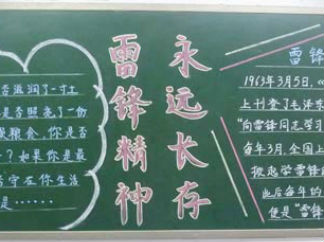 否滋润了一寸土
是否照亮了一份
颗粮食，你是否
？如果你是最
守在你生活
是……
永远长存
雷锋精神
雷锋
1963年3月5日，《
上刊登了毛泽东
“向雷锋同志学习
每年3月，全国上
掀起学雷锋的
此后每年的
便是“雷锋